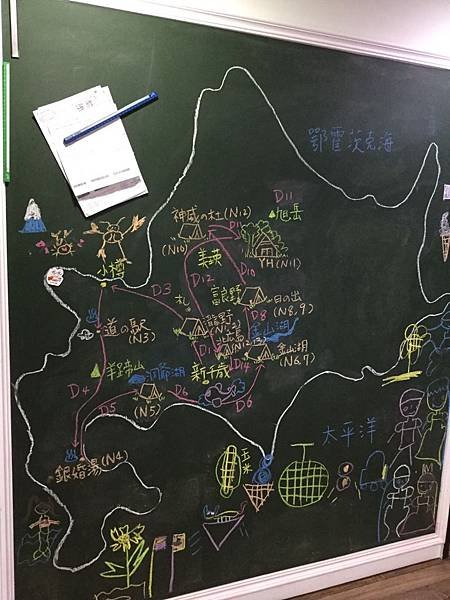 鄂霍茨克海
D11
旭岳
神威の杜(N12)
D11
(N10)
美英
YH(N11)
小樽
D3
D12
D10
富良野
札
日の出
(N8,9)
道の駅
(N3)
D8
金山湖
羊蹄山
洞爺湖
D1
D14
金山湖
(N6,7)
新千歳
D4
D5
D6
D6
(N5)
銀婚湯(N4)
玉米
太平洋